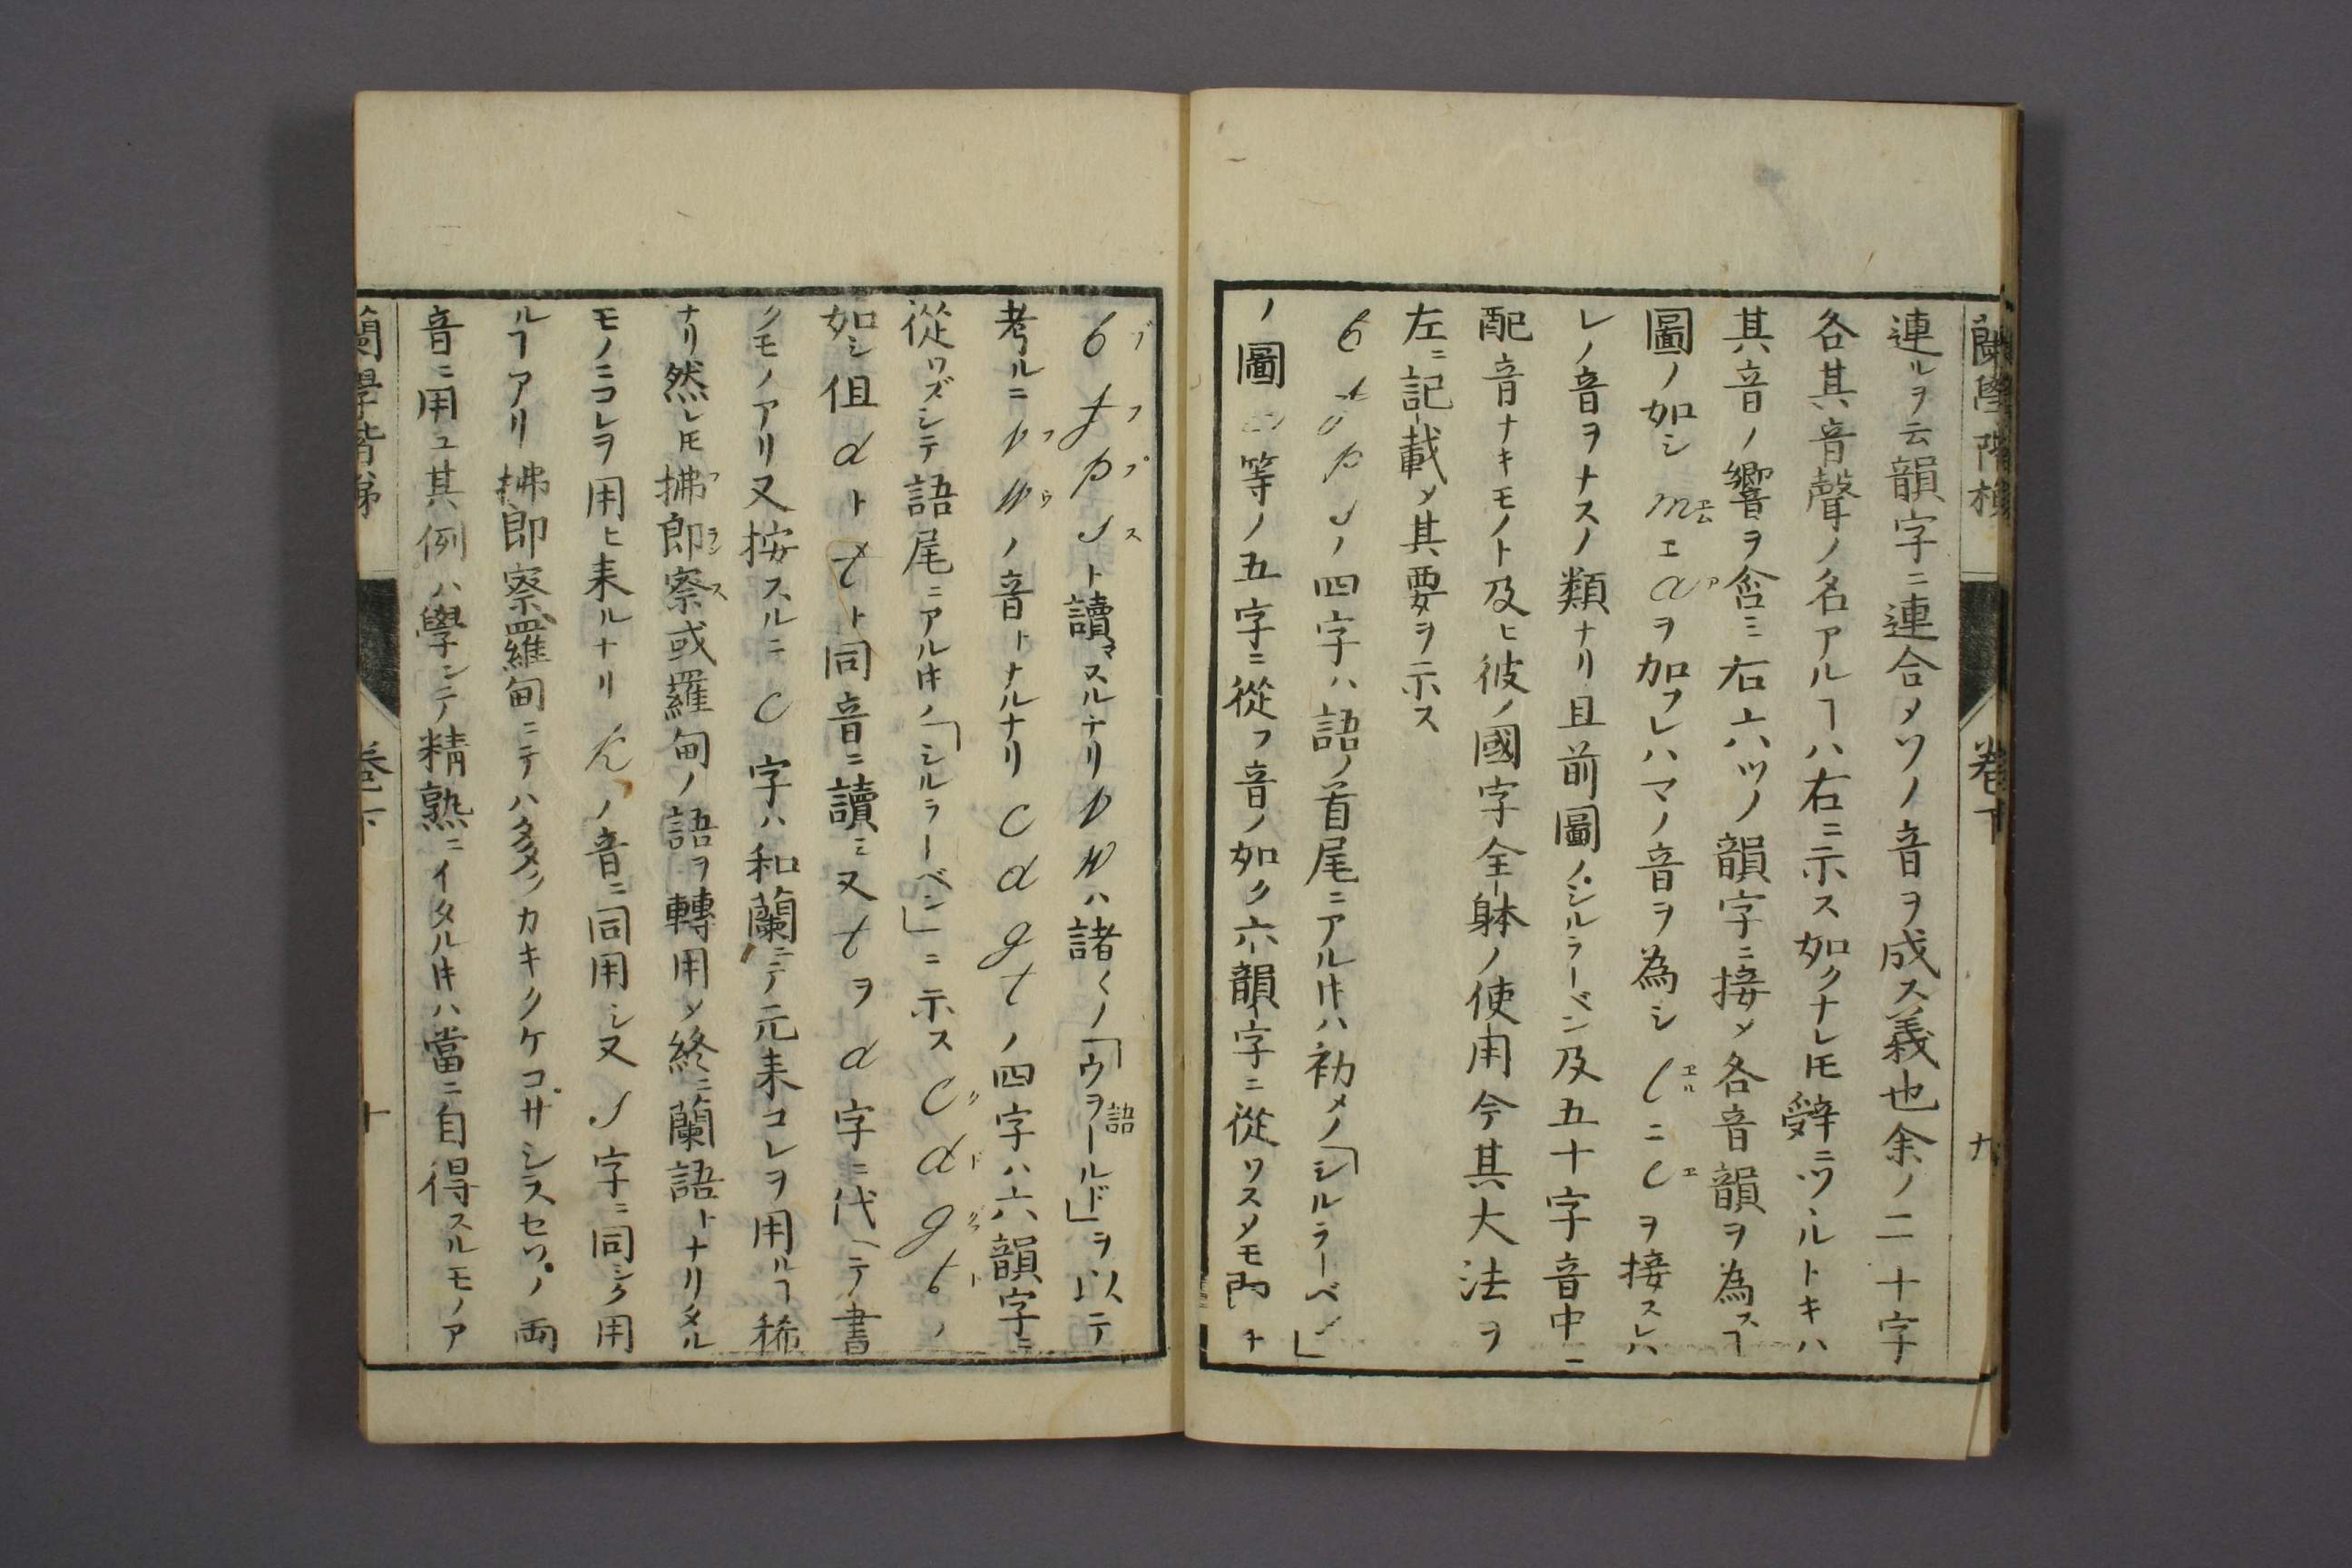 蘭學階梯 巻下 九
連ルヲ云韻字ニ連合メソノ音ヲ成ス義也余ノ二十字
各其音聲ノ名アルヿハ右ニ示ス如クナレ𪜈辭ニツヾルトキハ
其音ノ響ヲ含ミ右六ツノ韻字ニ接メ各音韻ヲ為スヿ
圖ノ如シ mエム エ aア ヲ加フレハマノ音ヲ為シ lエル ニ eエ ヲ接スレハ
レノ音ヲナスノ類ナリ且前圖ノシルラーベン及五十字音中ニ
配音ナキモノト及ヒ彼ノ國字全躰ノ使用今其大法ヲ
左ニ記載メ其要ヲ示ス
b f p s ノ四字ハ語ノ首尾ニアル𪜈ハ初メノ「シルラーベン」
ノ圖 等ノ五字ニ從フ音ノ如ク六韻字ニ從ワス
bブ fフ pプ sス ト讀マスルナリ v w ハ諸〱ノ「ウヲールド」語 ヲ以テ
考ルニ vフ wウ ノ音トナルナリ c d g t ノ四字ハ六韻字ニ
從ワズシテ語尾ニアル𪜈ノ「シルラーベン」ニ示ス cク dド gグ tト ノ
如シ但 d ト t ト同音ニ讀ミ又 t ヲ d 字ニ代ヘテ書
クモノアリ又按スルニ c 字ハ和蘭ニテ元来コレヲ用ルヿ稀
ナリ然レ𪜈拂郎察フランス或羅甸ノ語ヲ轉用メ終ニ蘭語トナリタル
モノニコレヲ用ヒ来ルナリ k ノ音ニ同用シ又 s 字ニ同シク用
ルヿアリ拂郎察羅甸ニテハ多クカキクケコサシスセソノ両
音ニ用ユ其例ハ學ンテ精熟ニイタル𪜈ハ當ニ自得スルモノア
蘭學階梯 巻下 十